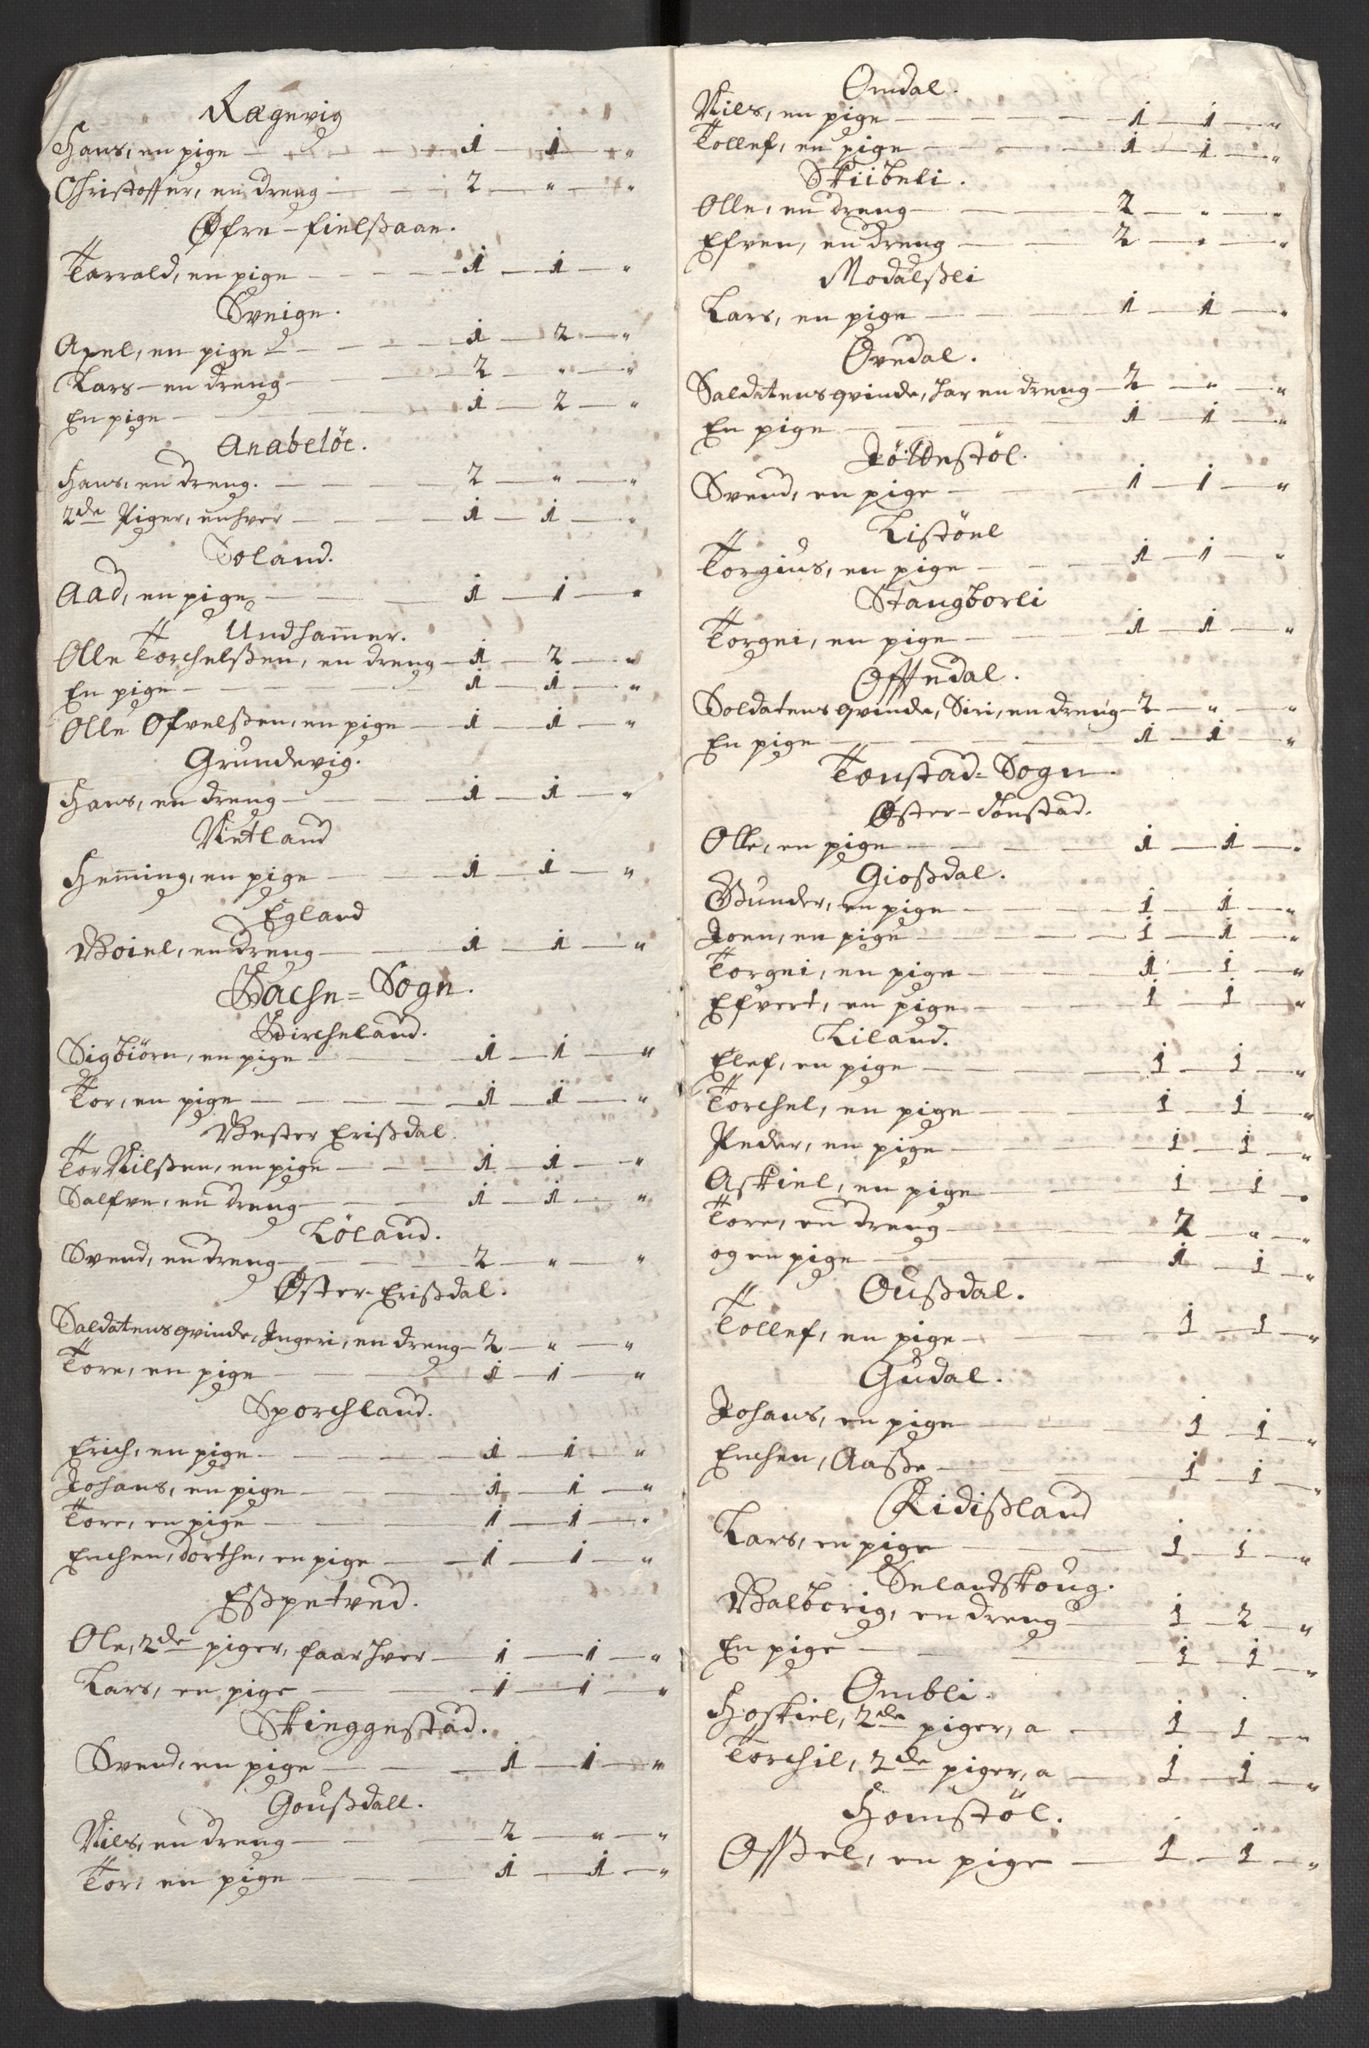 Rægevig
Hans, en pige — 1 — 1 — "
Christoffer, en dreng — 2 — " — "
Øfre-fielßaae.
Tarrald, en pige — 1 — 1 — "
Sveige.
Axel, en pige — 1 — 2 — "
Lars — en dreng — 2 — " — "
En pige — 1 — 2 — "
Anabeløe.
Hans, en dreng. — 2 — " — "
2de Piger, enhver — 1 — 1 — "
Soland.
Aad, en pige — 1 — 1 — "
Undhammer.
Olle Torchelßen, en dreng — 1 — 2 — "
En pige — 1 — 1 — "
Olle Ofvelßen, en pige — 1 — 1 — "
Grundevig.
Hans, en dreng — 1 — 1 — "
Nietland
Heming, en pige — 1 — 1 — "
Egland
Boiel, en dreng — 1 — 1 — "
Bache-Sogn.
Bircheland.
Sigbiörn, en pige — 1 — 1 — "
Tor, en pige — 1 — 1 — "
Vester Erißdal.
Tor Nilßen, en pige — 1 — 1 — "
Salfve, en dreng — 1 — 1 — "
Löland.
Svend, en dreng — 2 — " — "
Øster-Erißdal.
Saldatens qvinde, Ingeri, en dreng — 2 — " — "
Tore, en pige — 1 — 1 — "
Sporchland.
Erich, en pige — 1 — 1 — "
Johans, en pige — 1 — 1 — "
Tore, en pige — 1 — 1 — "
Enchen, dorthe, en pige — 1 — 1 — "
Eßpetved.
Ole, 2de piger, faar hver — 1 — 1 — "
Lars, en pige — 1 — 1 — "
Skieggestad.
Svend, en pige — 1 — 1 — "
Goußdall.
Nils, en dreng — 2 — " — "
Tor, en pige — 1 — 1 — "
Omdal.
Nils, en pige — 1 — 1 — "
Tollef, en pige — 1 — 1 — "
Skiibeli.
Olle, en dreng — 2 — " — "
Efven, en dreng — 2 — " — "
Modalßli
Lars, en pige — 1 — 1 — "
Ovedal.
Saldatens qvinde, har en dreng — 2 — " — "
En pige — 1 — 1 — "
Svend, en pige — 1 — 1 — "
Listöel
Torgius, en pige — 1 — 1 — "
Stangborli
Torgei, en pige — 1 — 1 — "
Offedal.
Soldatens qvinde, Siri, en dreng — 2 — " — "
En pige — 1 — 1 — "
Tonstad-Sogn.
Øster-Tonstad.
Olle, en pige — 1 — 1 — "
Gioßdal.
Gunder, en pige — 1 — 1 — "
Joen, en pige — 1 — 1 — "
Torgei, en pige — 1 — 1 — "
Efvert, en pige — 1 — 1 — "
Liland.
Elef, en pige — 1 — 1 — "
Torchel, en pige — 1 — 1 — "
Peder, en pige — 1 — 1 — "
Askiel, en pige — 1 — 1 — "
Tore, en dreng — 2 — " — "
og en pige — 1 — 1 — "
Oußdal.
Tollef, en pige — 1 — 1 — "
Gudal.
Johans, en pige — 1 — 1 — "
Enchen, Aaße — 1 — 1 — "
Ridißland
Lars, en pige — 1 — 1 — "
Selandskoug.
Valborig, en dreng — 1 — 2 — "
En pige — 1 — 1 — "
Ombli.
Hoskiel, 2de piger, a — 1 — 1 — "
Torchil, 2de piger, a — 1 — 1 — "
Homstöl.
Offel, en pige — 1 — 1 — "